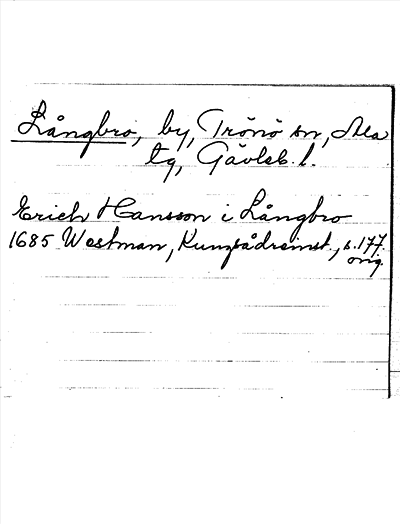 Långbro, by, Trönö sn, Ala
tg, Gävleb. l.
Erich Hansson i Långbro
1685 Westman, Kungsådreinst., s. 177.
orig.